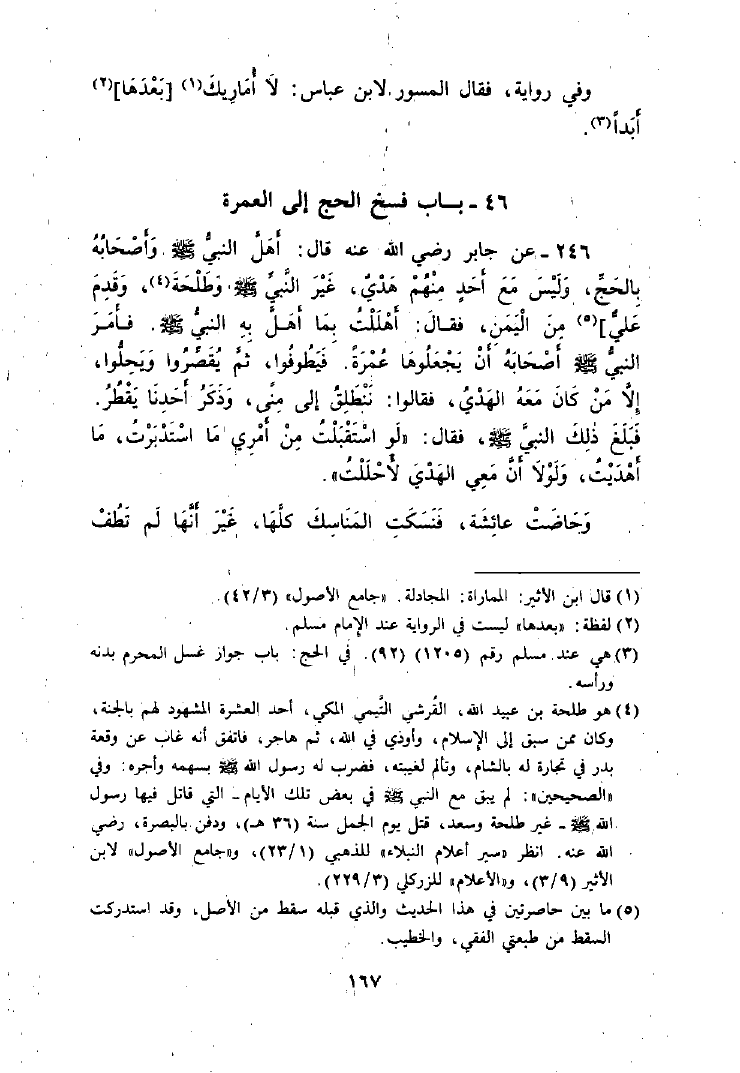 وفي رواية، فقال المسور لابن عباس: لَا أُمَارِيكَ(١) [بَعْدَهَا](٢)
أَبَداً(٣).
٤٦ - بـاب فسخ الحج إلى العمرة
٢٤٦ - عن جابر رضي الله عنه قال: أَهَلَّ النبيُّ ﷺ وَأَصْحَابُهُ
بِالحَجِّ، وَلَيْسَ مَعَ أَحَدٍ مِنْهُمْ هَدْيٌ، غَيْرَ النَّبيِّ ﷺ وَطَلْحَةَ(٤)، وَقَدِمَ
عَليٌّ](٥) مِنَ الْيَمَنِ، فقـالَ: أَهْلَلْتُ بِمَا أَهـلَّ بِهِ النبيُّ ﷺ. فـأَمَـرَ
النبيُّ ﷺ أَصْحَابَهُ أَنْ يَجْعَلُوهَا عُمْرَةً. فَيَطُوفُوا، ثمَّ يُقَصِّرُوا وَيَحِلُّوا،
إِلَّا مَنْ كَانَ مَعَهُ الهَدْيُ، فقالوا: نَنْطَلِقُ إلى مِنًى، وَذَكَرُ أَحَدِنَا يَقْطُرُ.
فَبَلَغَ ذٰلِكَ النبيَّ ﷺ، فقال: «لَوِ اسْتَقْبَلْتُ مِنْ أَمْرِي مَا اسْتَدْبَرْتُ، مَا
أَهْدَيْتُ، وَلَوْلَا أَنَّ مَعِي الهَدْيَ لَأَحْلَلْتُ».
وَحَاضَتْ عائِشَة، فَنَسَكَتِ المَنَاسِكَ كلَّهَا، غَيْرَ أَنَّهَا لَم تَطُفْ
(١) قال ابن الأثير: المماراة: المجادلة. «جامع الأصول» (٤٢/٣).
(٢) لفظة: «بعدها» ليست في الرواية عند الإمام مسلم.
(٣) هي عند مسلم رقم (١٢٠٥) (٩٢). في الحج: باب جواز غسل المحرم بدنه
ورأسه.
(٤) هو طلحة بن عبيد الله، القُرشي التَّيمي المكي، أحد العشرة المشهود لهم بالجنة،
وكان ممن سبق إلى الإسلام، وأوذي في الله، ثم هاجر، فاتفق أنه غاب عن وقعة
بدر في تجارة له بالشام، وتألم لغيبته، فضرب له رسول الله ﷺ بسهمه وأجره: وفي
«الصحيحين»: لم يبق مع النبي ﷺ في بعض تلك الأيام - التي قاتل فيها رسول
الله ﷺ - غير طلحة وسعد، قتل يوم الجمل سنة (٣٦ هـ)، ودفن بالبصرة، رضي
الله عنه. انظر «سير أعلام النبلاء» للذهبي (٢٣/١)، و«جامع الأصول» لابن
الأثير (٣/٩)، و«الأعلام» للزركلي (٢٢٩/٣).
(٥) ما بين حاصرتين في هذا الحديث والذي قبله سقط من الأصل، وقد استدركت
السقط من طبعتي الفقي، والخطيب.
١٦٧